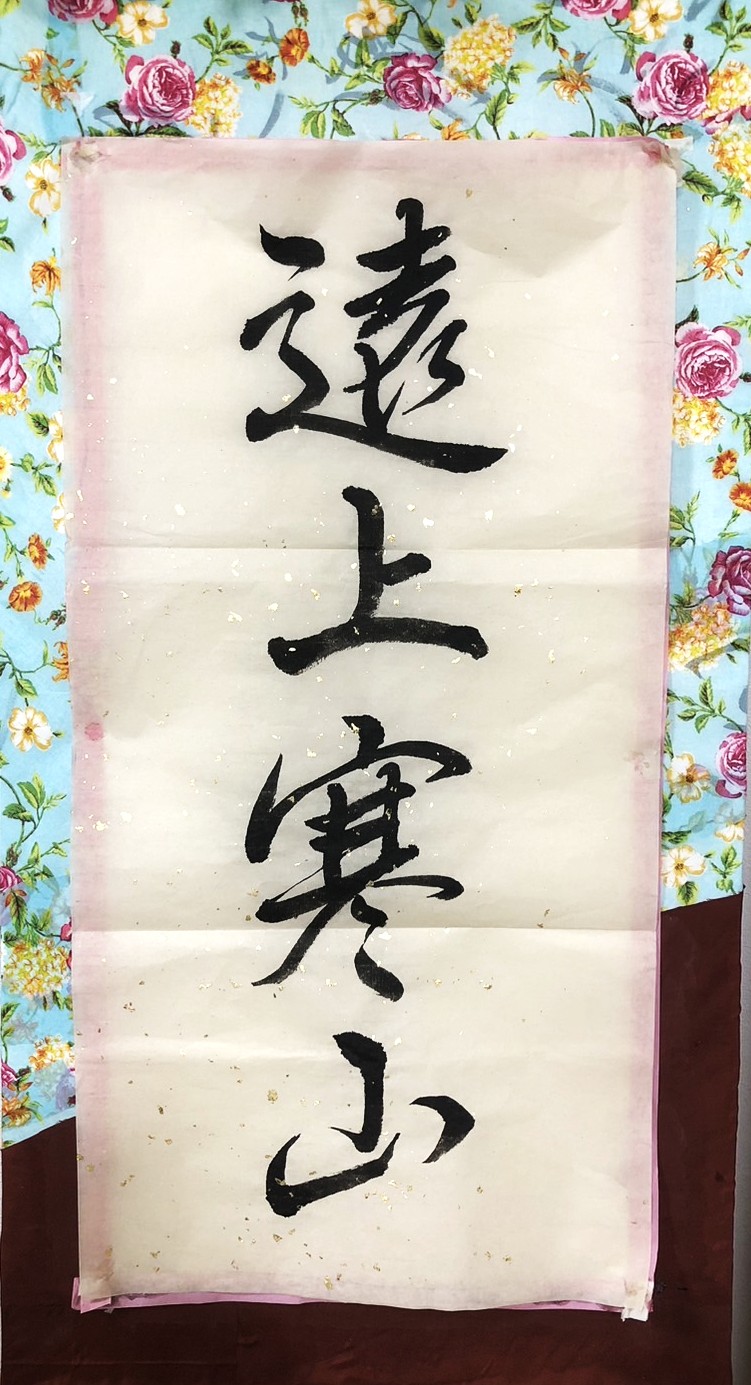 遠上寒山